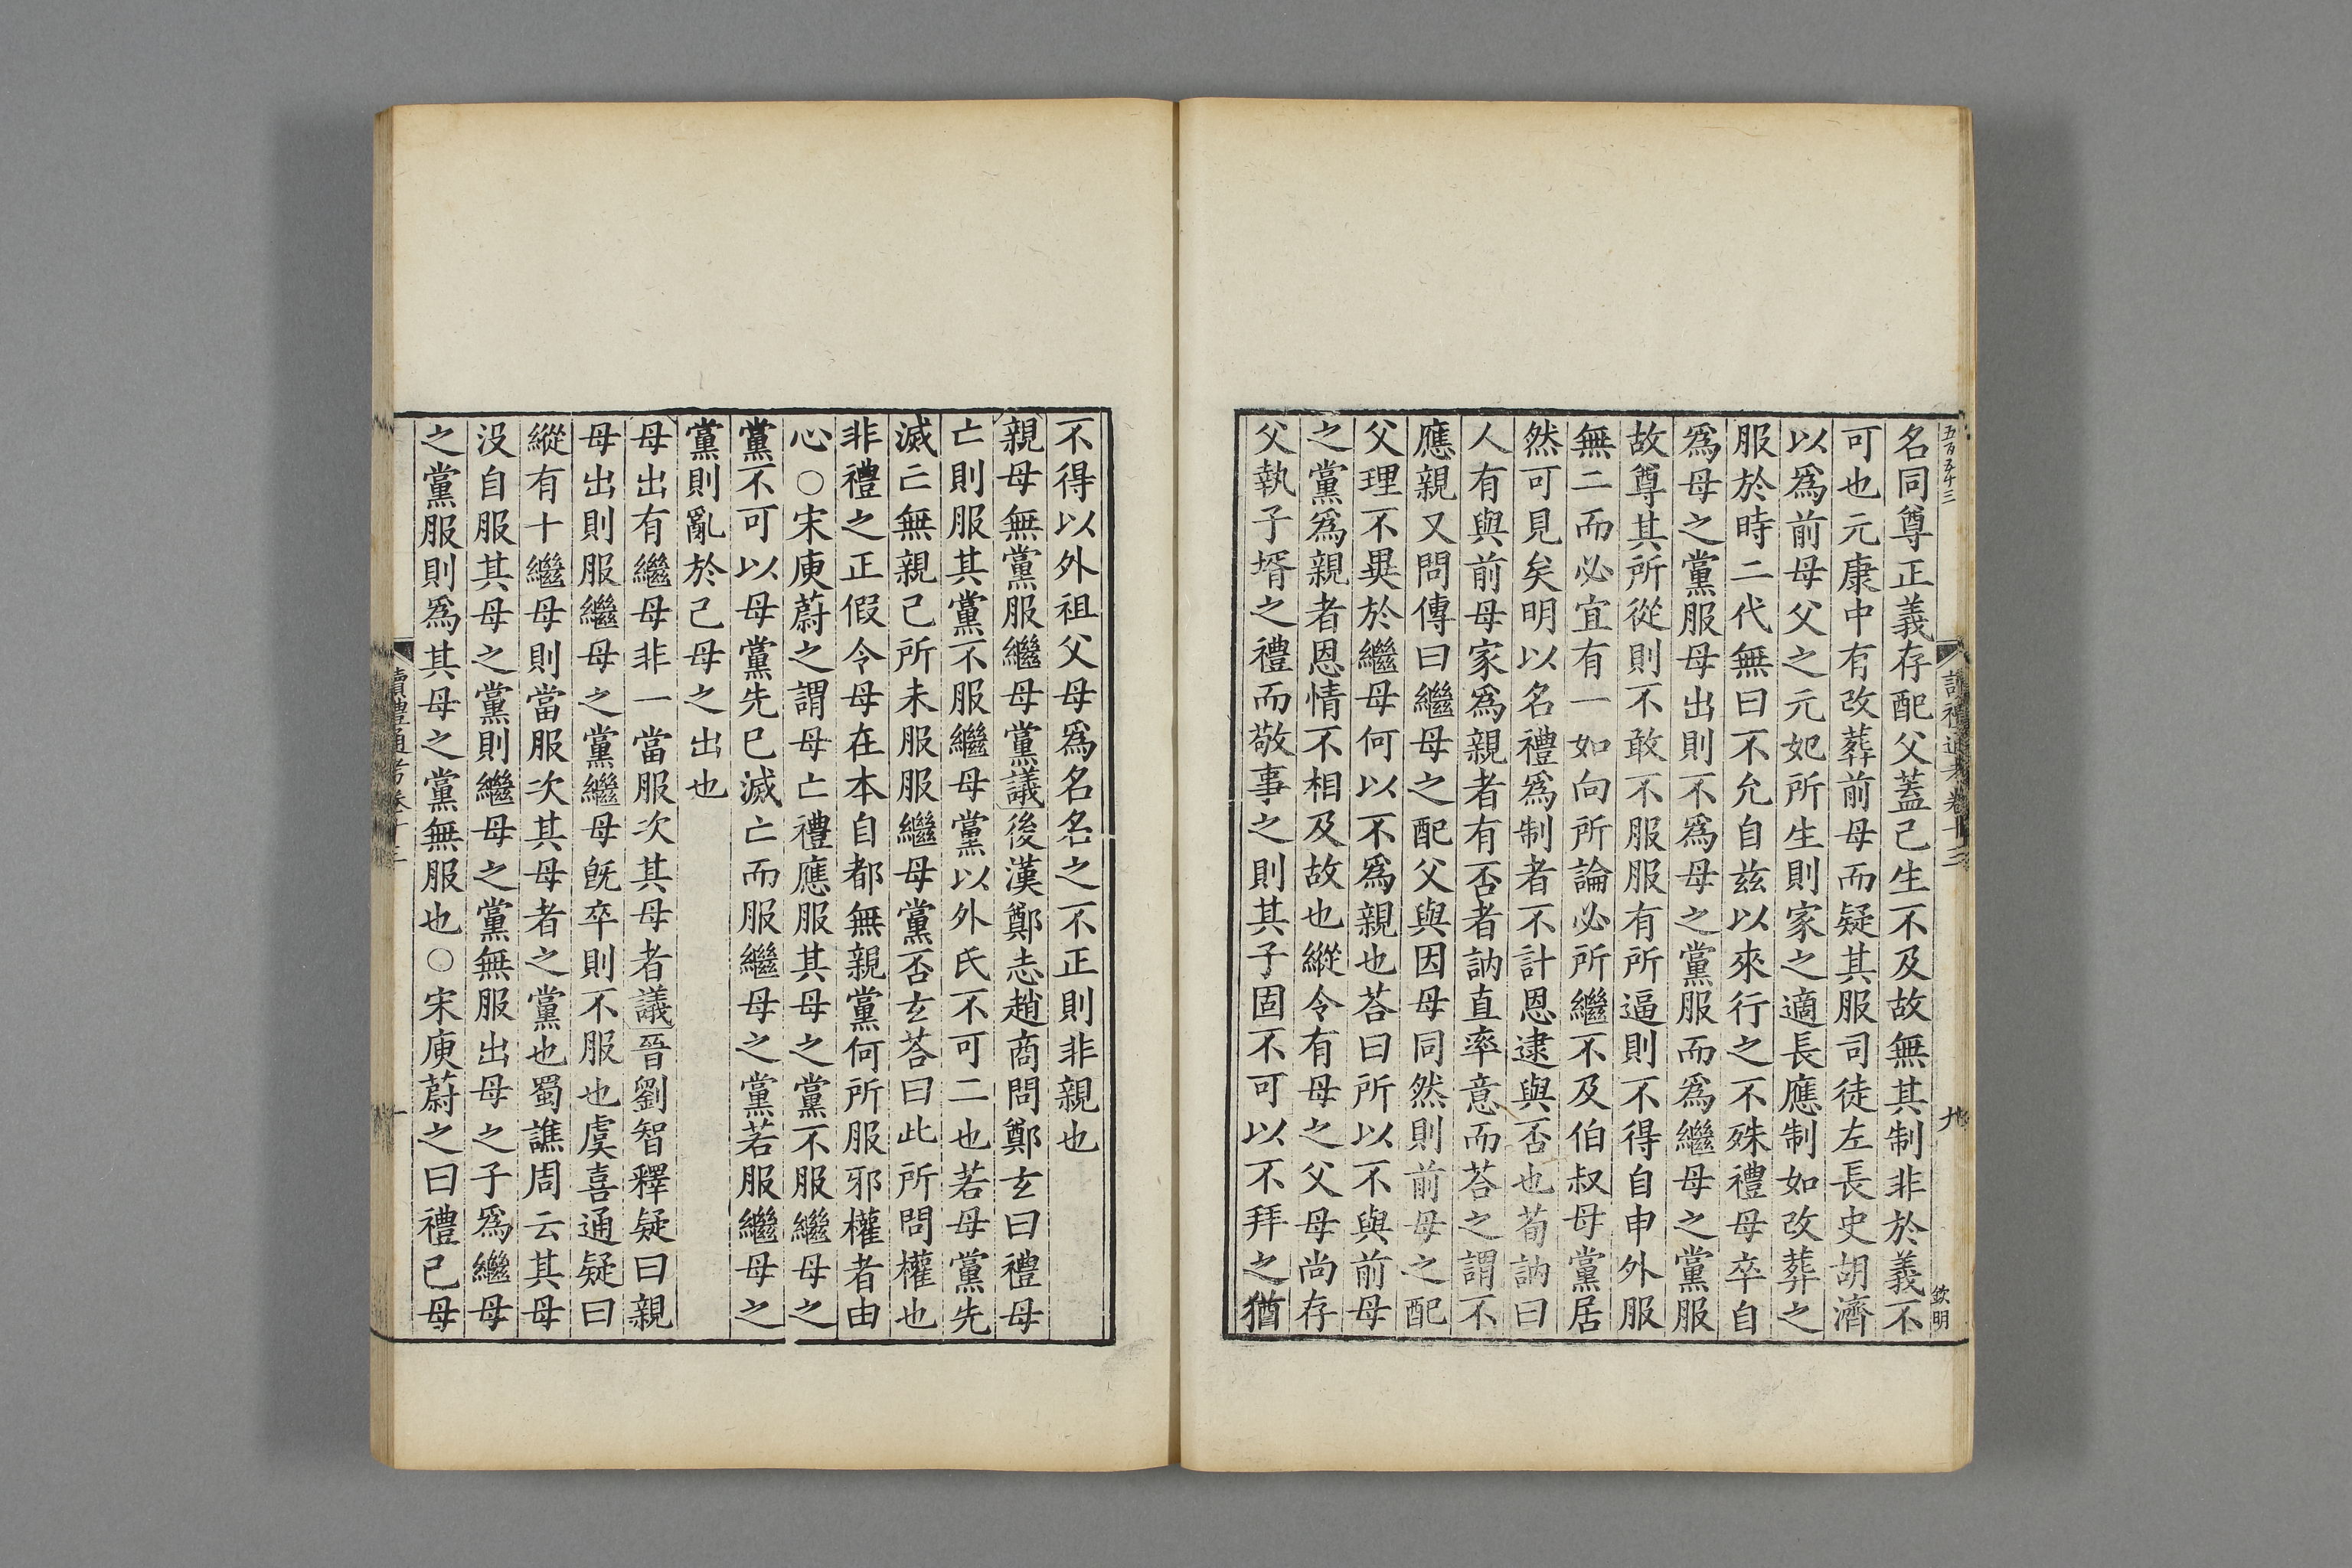 五百五十三
讀禮通考卷十三
九
欽明
名同尊正義存配父蓋己生不及故無其制非於義不
可也元康中有改葬前母而疑其服司徒左長史胡濟
以爲前母父之元妃所生則家之適長應制如改葬之
服於時二代無曰不允自兹以來行之不殊禮母卒自
爲母之黨服母出則不爲母之黨服而爲繼母之黨服
故尊其所從則不敢不服服有所逼則不得自申外服
無二而必宜有一如向所論必所繼不及伯叔母黨居
然可見矣明以名禮爲制者不計恩逮與否也荀訥曰
人有與前母家爲親者有否者訥直率意而荅之謂不
應親又問傳曰繼母之配父與因母同然則前母之配
父理不異於繼母何以不爲親也荅曰所以不與前母
之黨爲親者恩情不相及故也縱令有母之父母尚存
父執子壻之禮而敬事之則其子固不可以不拜之猶
不得以外祖父母爲名名之不正則非親也
親母無黨服繼母黨議後漢鄭志趙商問鄭玄曰禮母
亡則服其黨不服繼母黨以外氏不可二也若母黨先
滅亡無親己所未服服繼母黨否玄荅曰此所問權也
非禮之正假令母在本自都無親黨何所服邪權者由
心○宋庾蔚之謂母亡禮應服其母之黨不服繼母之
黨不可以母黨先已滅亡而服繼母之黨若服繼母之
黨則亂於己母之出也
母出有繼母非一當服次其母者議晉劉智釋疑曰親
母出則服繼母之黨繼母旣卒則不服也虞喜通疑曰
縱有十繼母則當服次其母者之黨也蜀譙周云其母
没自服其母之黨則繼母之黨無服出母之子爲繼母
之黨服則爲其母之黨無服也○宋庾蔚之曰禮己母
讀禮通考卷十三
十